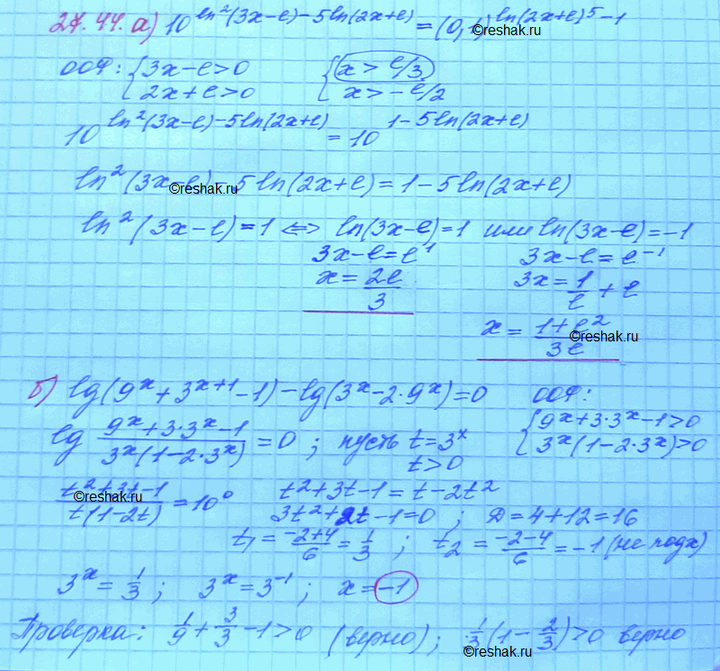 27.44.а) 10^(ln²(3x-e)-5ln(2x+e)) = (0,1)^(ln(2x+e)⁵-1)
©reshak.ru
ООФ: {3x-e>0 {x>e/3
2x+e>0 x>-e/2
10^(ln²(3x-e)-5ln(2x+e)) = 10^(1-5ln(2x+e))
ln²(3x-e)-5ln(2x+e)=1-5ln(2x+e)
©reshak.ru
ln²(3x-e)=1 ⇔ ln(3x-e)=1 или ln(3x-e)=-1
3x-e=e¹ 3x-e=e⁻¹
x=2e/3 3x=1/e+e
x=(1+e²)/3e
©reshak.ru
б) lg(9ˣ+3ˣ⁺¹-1)-lg(3ˣ-2·9ˣ)=0 ООФ:
lg (9ˣ+3·3ˣ-1)/(3ˣ(1-2·3ˣ))=0; пусть t=3ˣ {9ˣ+3·3ˣ-1>0
t>0 3ˣ(1-2·3ˣ)>0
(t²+3t-1)/(t(1-2t))=10⁰ t²+3t-1=t-2t²
©reshak.ru
3t²+2t-1=0; D=4+12=16
t₁=(-2+4)/6=1/3; t₂=(-2-4)/6=-1 (не подх)
3ˣ=1/3; 3ˣ=3⁻¹; x=-1
Проверка: 1/9+3/3-1>0 (верно); 1/3(1-2/3)>0 верно
©reshak.ru